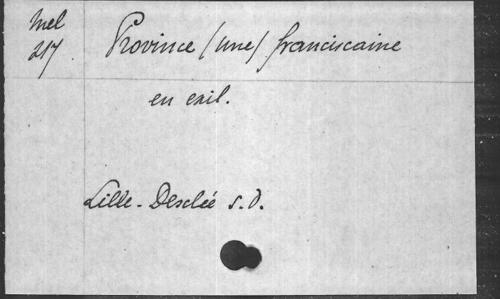 Mel
217
Province (une) franciscaine
en exil.
Lille - Desclée s.d.